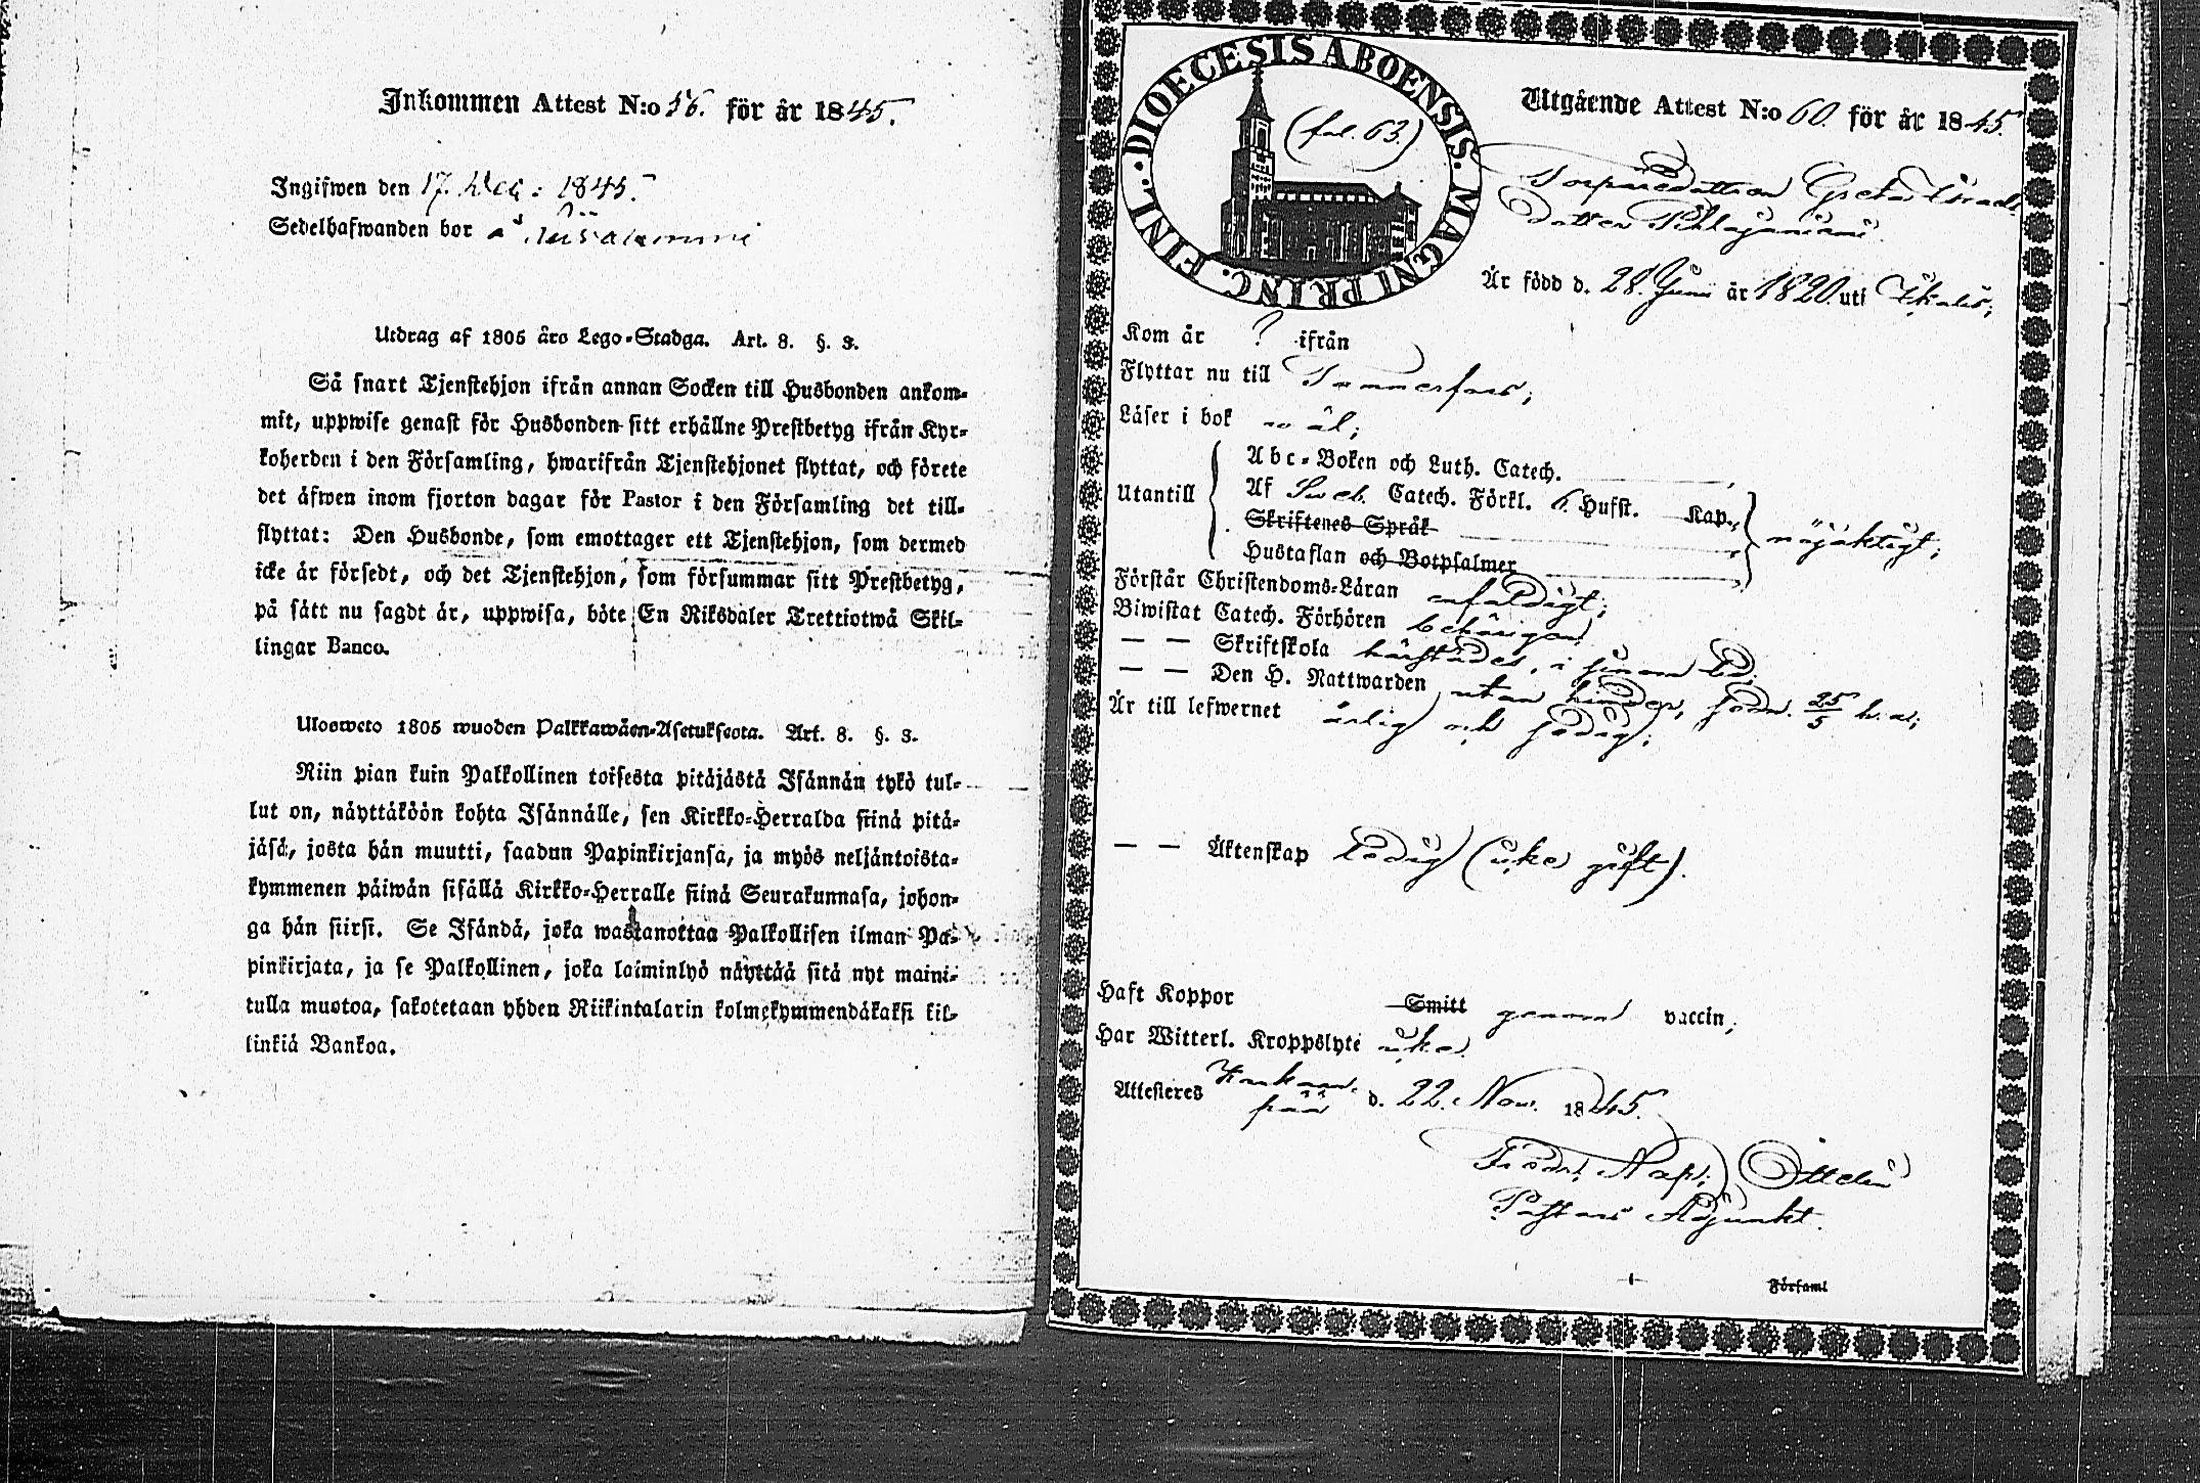 Inkommen Attest N:o 56. för år 1845.
Ingifwen den 17. Dec: 1845.
Sedelhafwanden bor å
Utdrag af 1805 års Lego-Stadga. Art. 8. §. 3.
Så snart Tjenstehjon ifrån annan Socken till Husbonden ankom-
mit, uppwise genast för Husbonden sitt erhållne Prestbetyg ifrån Kyr-
koherden i den Församling, hwarifrån Tjenstehjonet flyttat, och förete
det äfwen inom fjorton dagar för Pastor i den Församling det till-
flyttat: Den Husbonde, som emottager ett Tjenstehjon, som dermed
icke är försedt, och det Tjenstehjon, som försummar sitt Prestbetyg,
på sätt nu sagdt är, uppwisa, böte En Riksdaler Trettiotwå Skil-
lingar Banco.
Ulosweto 1805 wuoden Palkkawäen-Asetuksesta. Art. 8. §. 3.
Niin pian kuin Palkollinen toisesta pitäjästä Isännän tykö tul-
lut on, näyttäköön kohta Isännälle, sen Kirkko-Herralda siinä pitä-
jäsä, josta hän muutti, saadun Papinkirjansa, ja myös neljäntoista-
kymmenen päiwän sisällä Kirkko-Herralle siinä Seurakunnasa, johon-
ga hän siirsi. Se Isändä, joka wastanottaa Palkollisen ilman Pa-
pinkirjata, ja se Palkollinen, joka laiminlyö näyttää sitä nyt maini-
tulla muotoa, sakotetaan yhden Riikintalarin kolmekymmendäkaksi kil-
linkiä Bankoa.
DIOECESIS ABOENSIS. MAGNI PRINC. FINL.
(fol. 63.)
Utgående Attest N:o 60. för år 1845.
Torparedottren Greta
dotter Pihlajaniemi
Är född d. 28. Juni år 1820 uti Ikalis;
Kom år ? ifrån
Flyttar nu till Tammerfors;
Läser i bok wäl;
Abc-Boken och Luth. Catech.
Utantill Af Sweb. Catech. Förkl. 6. Hufst. Kap.
Skriftenes Språk
nöjaktigt;
Hustaflan och Botpsalmer
Förstår Christendoms-Läran enfaldigt;
Biwistat Catech. Förhören behörigen;
— — Skriftskola härstädes, i sinom tid;
— — Den H. Nattwarden utan hinder, sedn. 25/5 h. a.;
Är till lefwernet ärlig och sedig;
— — Äktenskap ledig (icke gift).
Haft Koppor Smitt genom vaccin;
Har Witterl. Kroppslyte icke.
Attesteres Kankaan-
pää d. 22. Nov. 1845.
Fredr. Nap. Ottelin
Pastors Adjunkt.
Församl